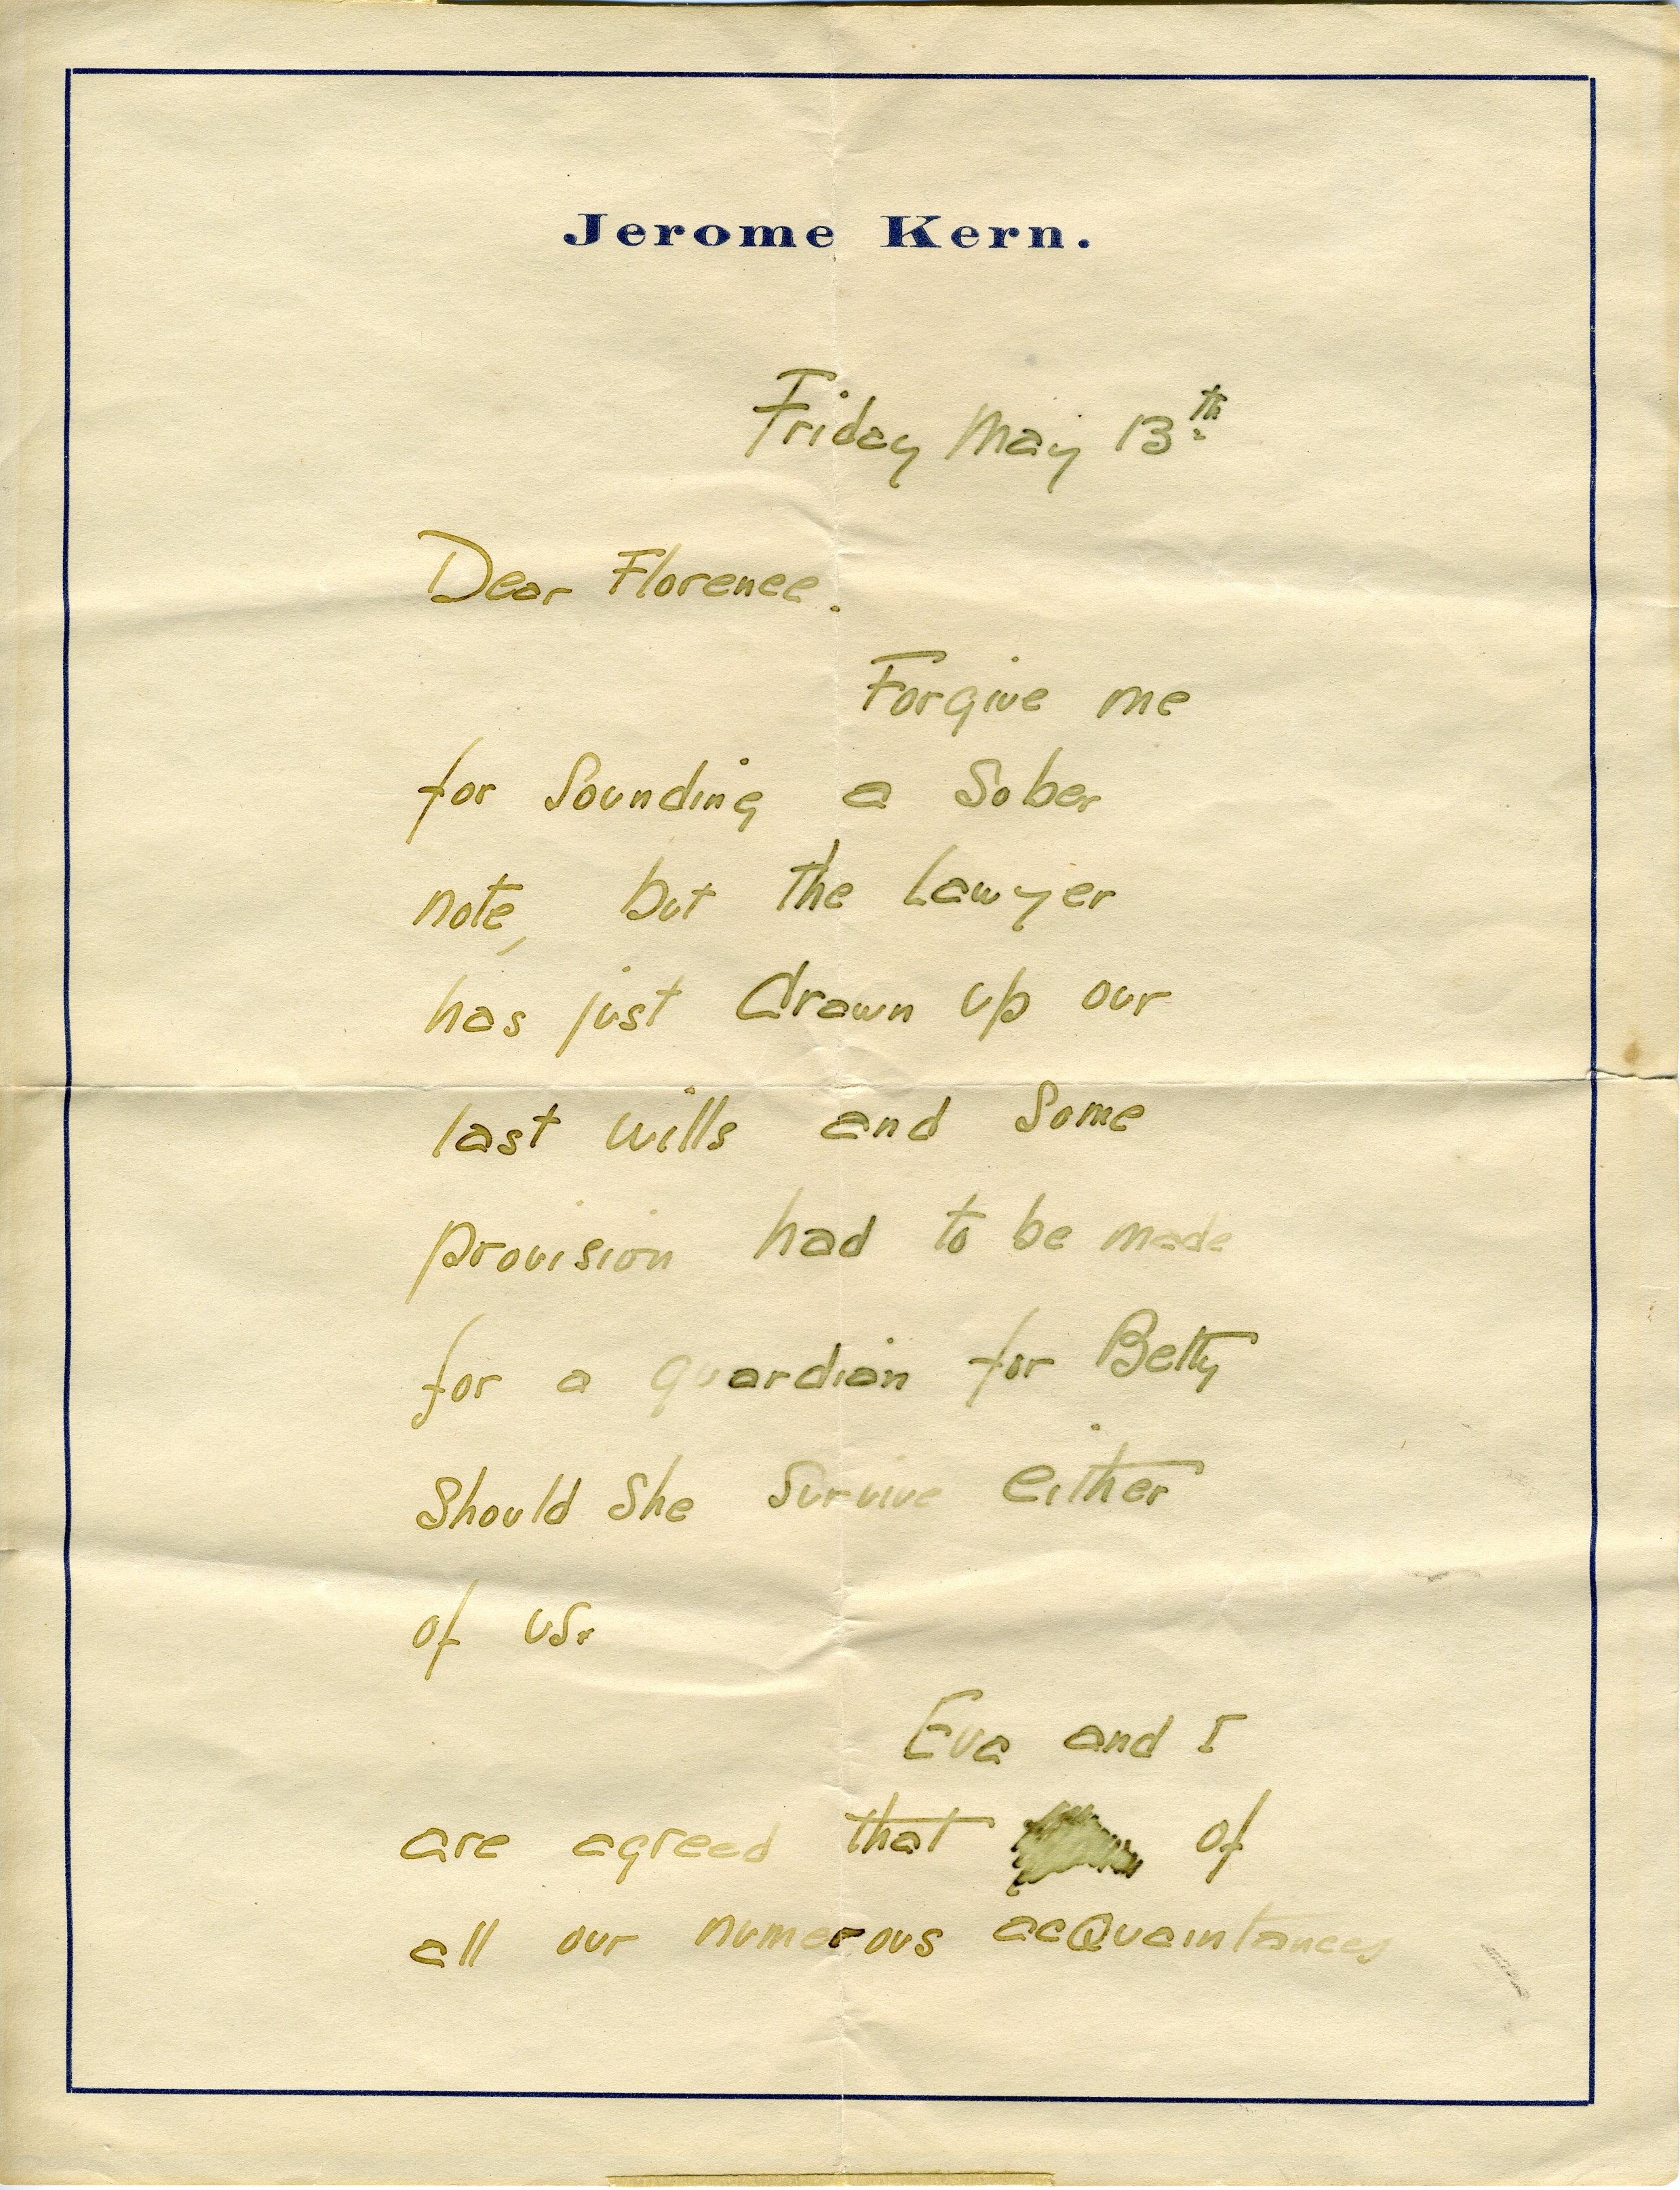 Jerome Kern.
Friday May 13th
Dear Florence.
Forgive me
for sounding a sober
note, but the lawyer
has just drawn up our
last wills and some
provision had to be made
for a guardian for Betty
should she survive either
of us.
Eva and I
are agreed that of
all our numerous acquaintances